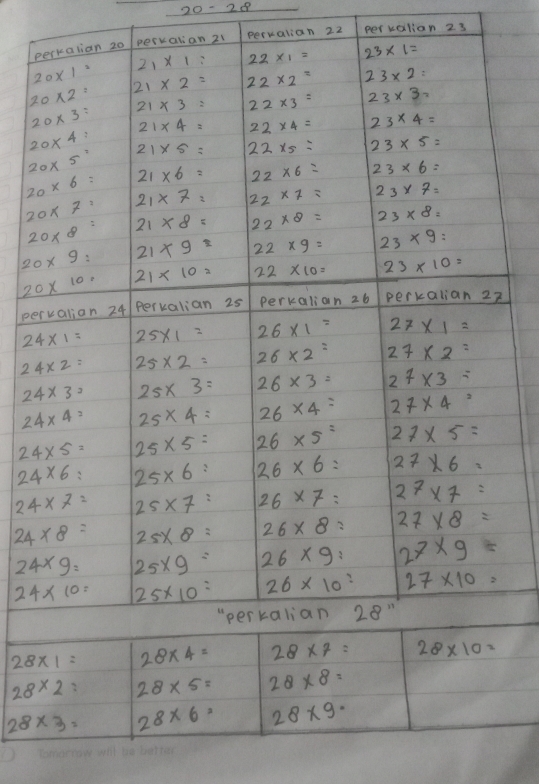 20 - 28
Perkalian 20
20 x 1 =
20 x 2 =
20 x 3 =
20 x 4 =
20 x 5 =
20 x 6 =
20 x 7 =
20 x 8 =
20 x 9 =
20 x 10 =
Perkalian 21
21 x 1 =
21 x 2 =
21 x 3 =
21 x 4 =
21 x 5 =
21 x 6 =
21 x 7 =
21 x 8 =
21 x 9 =
21 x 10 =
Perkalian 22
22 x 1 =
22 x 2 =
22 x 3 =
22 x 4 =
22 x 5 =
22 x 6 =
22 x 7 =
22 x 8 =
22 x 9 =
22 x 10 =
Perkalian 23
23 x 1 =
23 x 2 =
23 x 3 =
23 x 4 =
23 x 5 =
23 x 6 =
23 x 7 =
23 x 8 =
23 x 9 =
23 x 10 =
Perkalian 24
24 x 1 =
24 x 2 =
24 x 3 =
24 x 4 =
24 x 5 =
24 x 6 =
24 x 7 =
24 x 8 =
24 x 9 =
24 x 10 =
Perkalian 25
25 x 1 =
25 x 2 =
25 x 3 =
25 x 4 =
25 x 5 =
25 x 6 =
25 x 7 =
25 x 8 =
25 x 9 =
25 x 10 =
Perkalian 26
26 x 1 =
26 x 2 =
26 x 3 =
26 x 4 =
26 x 5 =
26 x 6 =
26 x 7 =
26 x 8 =
26 x 9 =
26 x 10 =
Perkalian 27
27 x 1 =
27 x 2 =
27 x 3 =
27 x 4 =
27 x 5 =
27 x 6 =
27 x 7 =
27 x 8 =
27 x 9 =
27 x 10 =
"Perkalian 28"
28 x 1 =
28 x 2 =
28 x 3 =
28 x 4 =
28 x 5 =
28 x 6 =
28 x 7 =
28 x 8 =
28 x 9 =
28 x 10 =
Tomorrow will be better